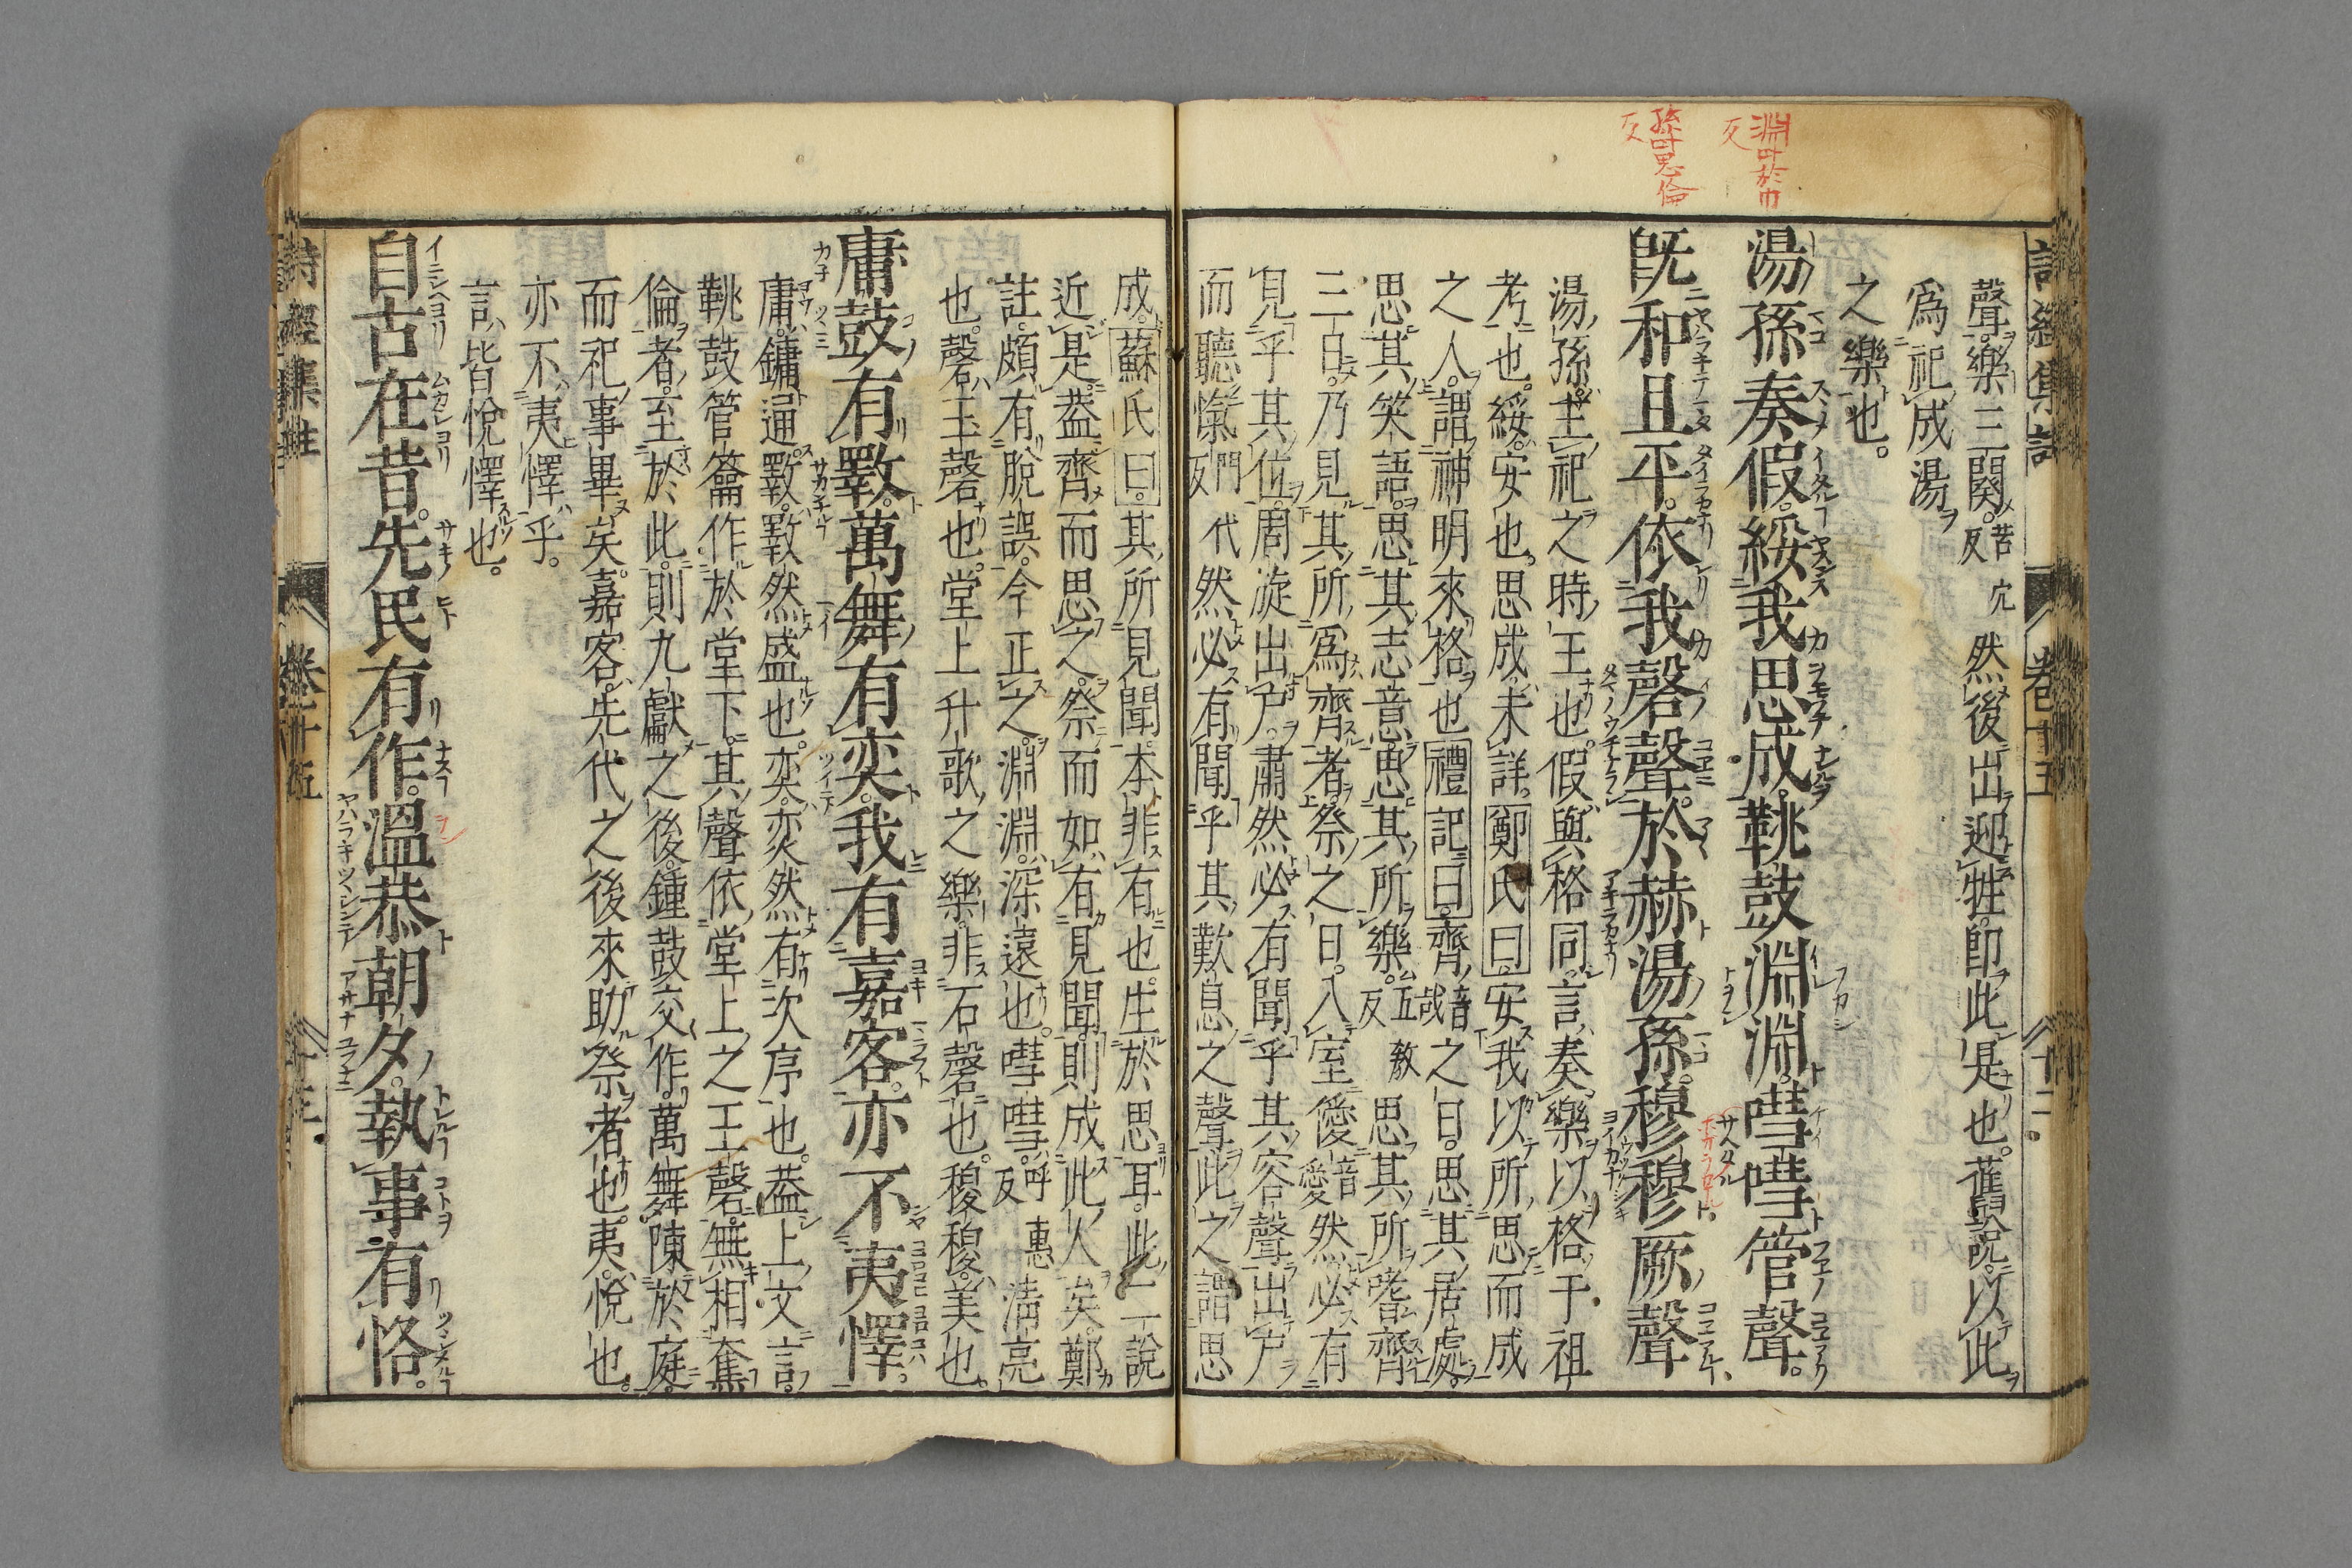 淵叶於巾
反
孫叶思倫
反
詩經集註 卷十五 十二
聲樂三闋苦穴反然後出迎牲卽此是也舊說以此
爲祀成湯
之樂也
湯孫奏假綏我思成鞉鼓淵淵嘒嘒管聲
旣和且平依我磬聲於赫湯孫穆穆厥聲
湯孫主祀之時王也假與格同言奏樂以格于祖
考也綏安也思成未詳鄭氏曰安我以所思而成
之人謂神明來格也禮記曰齊音哉之日思其居處
思其笑語思其志意思其所樂五教反思其所嗜齊
三日乃見其所爲齊者祭之日入室僾音愛然必有
見乎其位周旋出戶肅然必有聞乎其容聲出戶
而聽愾門代反然必有聞乎其歎息之聲此之謂思
成蘇氏曰其所見聞本非有也生於思耳此二說
近是蓋齊而思之祭而如有見聞則成此人矣鄭
註頗有脫誤今正之淵淵深遠也嘒嘒呼惠反淸亮
也磬玉磬也堂上升歌之樂非石磬也穆穆美也
庸鼓有斁萬舞有奕我有嘉客亦不夷懌
庸鏞通斁斁然盛也奕奕然有次序也蓋上文言
鞉鼓管籥作於堂下其聲依堂上之玉磬無相奪
倫者至於此則九獻之後鍾鼓交作萬舞陳於庭
而祀事畢矣嘉客先代之後來助祭者也夷悅也
亦不夷懌乎
言皆悅懌也
自古在昔先民有作溫恭朝夕執事有恪
詩經集註 卷十五 十三